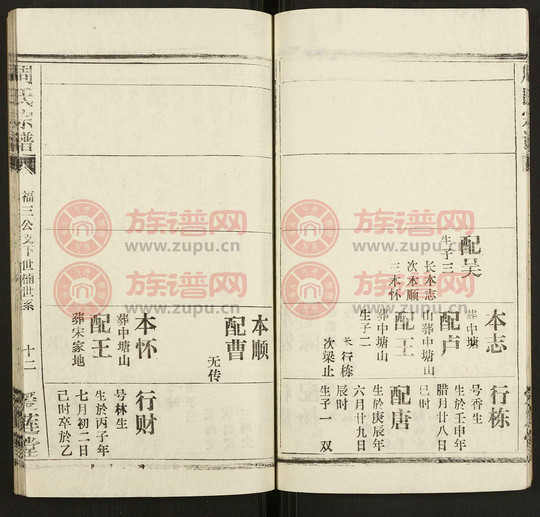 配吴
生子三
长本志
次本顺
三本怀
本志
葬中塘
配卢
山葬中塘山
配王
葬中塘山
生子二
长行栋
次梁止
行栋
号香生
生於壬申年
腊月廿八日
巳时
配唐
生於庚辰年
六月廿九日
辰时
生子一
双
本顺
配曹
无传
本怀
葬中塘山
配王
葬宋家地
行财
号林生
生於丙子年
七月初二日
己时卒於乙
周氏宗谱
福三公支下世
世系
十二
爱莲堂
族谱网
www.zupu.cn
族谱网
www.zupu.cn